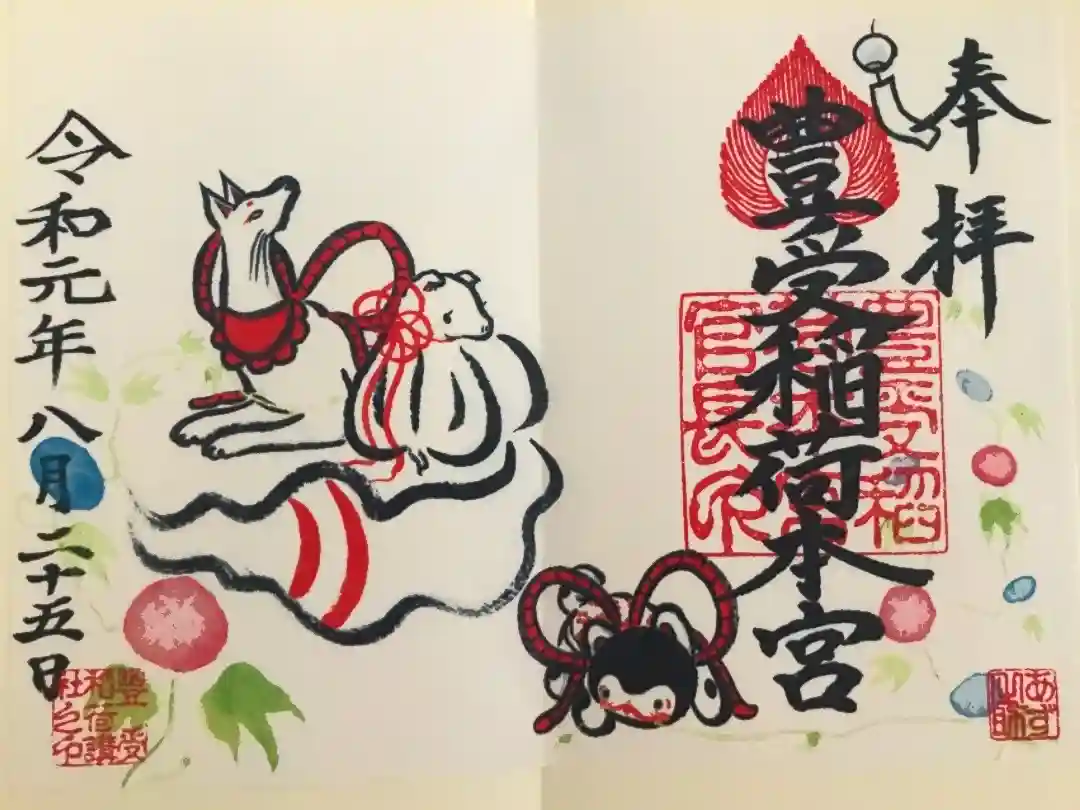 奉拝
豊受稲荷本宮
令和元年八月二十五日
豊受
稲荷講
社之印